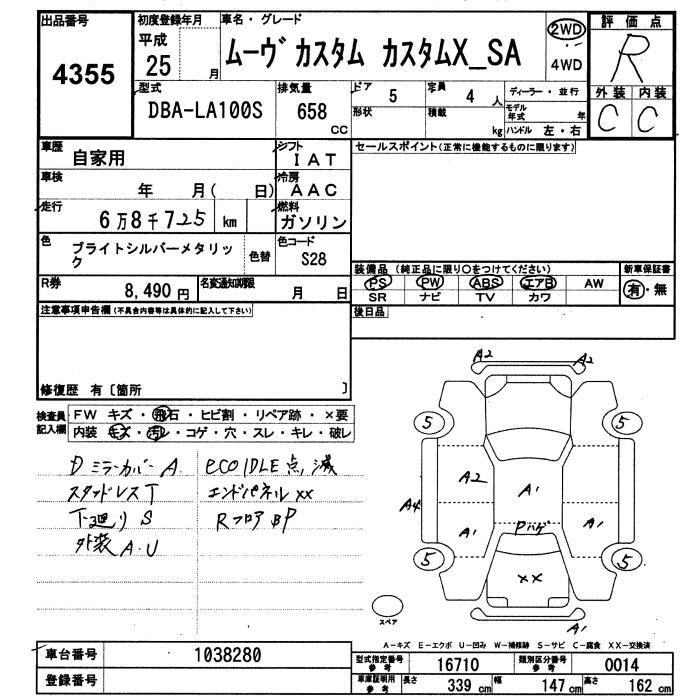 出品番号
4355
初度登録年月
平成
25 月
車名・グレード
ムーヴ カスタム カスタムX_SA
2WD
4WD
評価点
R
外装 内装
C C
型式
DBA-LA100S
排気量
658
CC
ドア 5
定員 4 人
形状
積載 kg
ディーラー・並行
モデル年式 年
ハンドル 左・右
車歴
自家用
シフト
IAT
車検
年 月( 日)
冷房
AAC
走行
6万8千725 km
燃料
ガソリン
色
ブライトシルバーメタリック
色替
色コード
S28
R券
8,490円
名変通知期限
月 日
セールスポイント(正常に機能するものに限ります)
装備品 (純正品に限り○をつけてください)
PS PW ABS エアB AW
SR ナビ TV カワ
新車保証書
有・無
後日品
注意事項申告欄(不具合内容等は具体的に記入して下さい)
修復歴 有〔箇所 〕
検査員記入欄
FW キズ・飛石・ヒビ割・リペア跡・×要
内装 キズ・汚レ・コゲ・穴・スレ・キレ・破レ
Dミラーカバー A
スタッドレスT
下廻り S
外装 A.U
eco IDLE 点滅
エンドパネル xx
Rフロア BP
A2
A2
5
5
A2
A1
A4
A1
Pハゲ
A1
5
5
XX
A1
スペア
A-キズ E-エクボ U-凹み W-補修跡 S-サビ C-腐食 XX-交換済
車台番号
1038280
登録番号
型式指定番号 参考
16710
類別区分番号 参考
0014
車庫証明用 参考
長さ 339 cm
幅 147 cm
高さ 162 cm